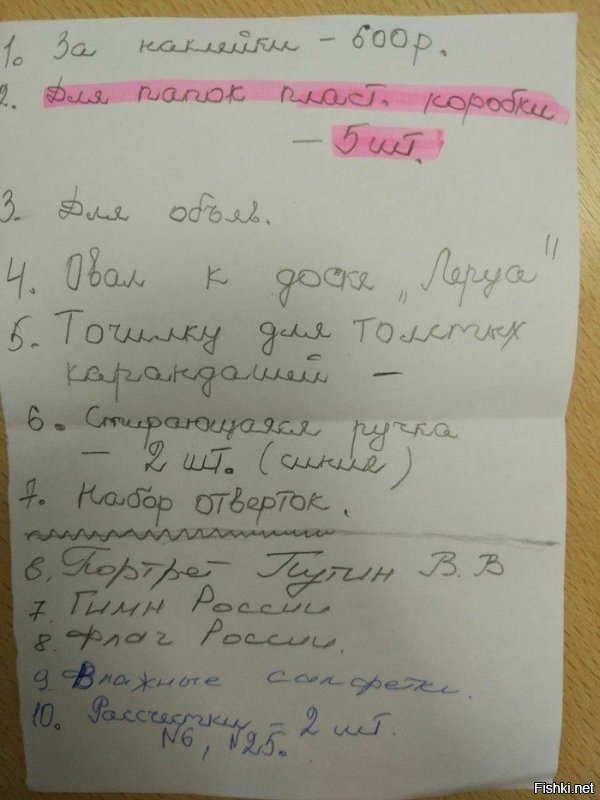 1. За наклейки – 600р.
2. Для папок пласт. коробки
– 5 шт.
3. Для объяв.
4. Овал к доске „Леруа"
5. Точилку для толстых
карандашей –
6. Стирающаяся ручка
– 2 шт. (синие)
7. Набор отверток.
6. Портрет Путин В.В
7. Гимн России
8. Флаг России.
9. Влажные салфетки.
10. Рассчестки – 2 шт.
N6, N25.
Fishki.net